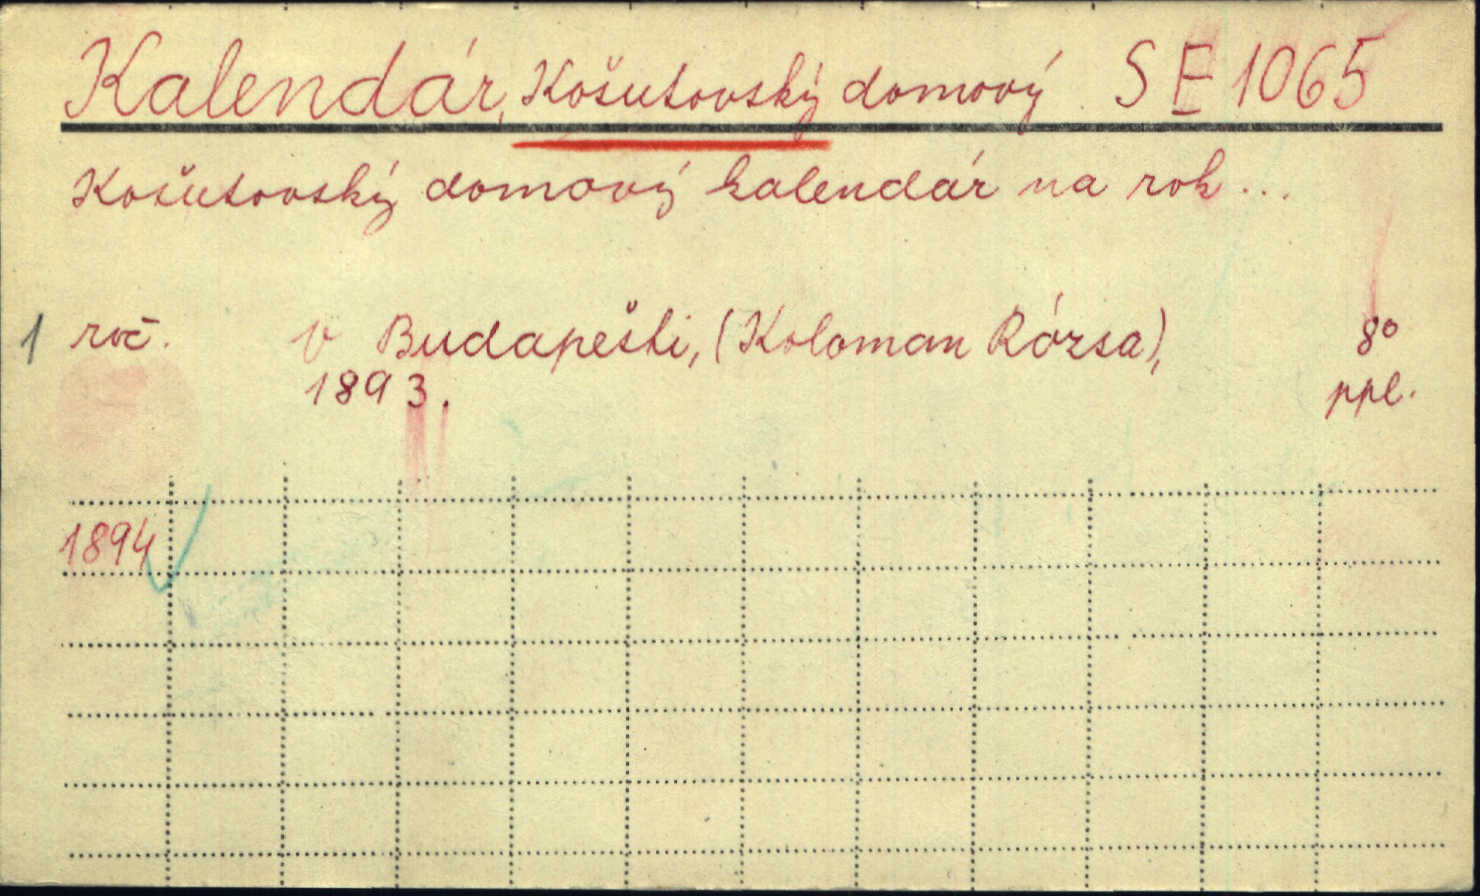 Kalendár, Košutovský domový. SE 1065
Košutovský domový kalendár na rok...
1 roč. v Budapešti, (Koloman Rózsa), 8°
1893. ppl.
1894